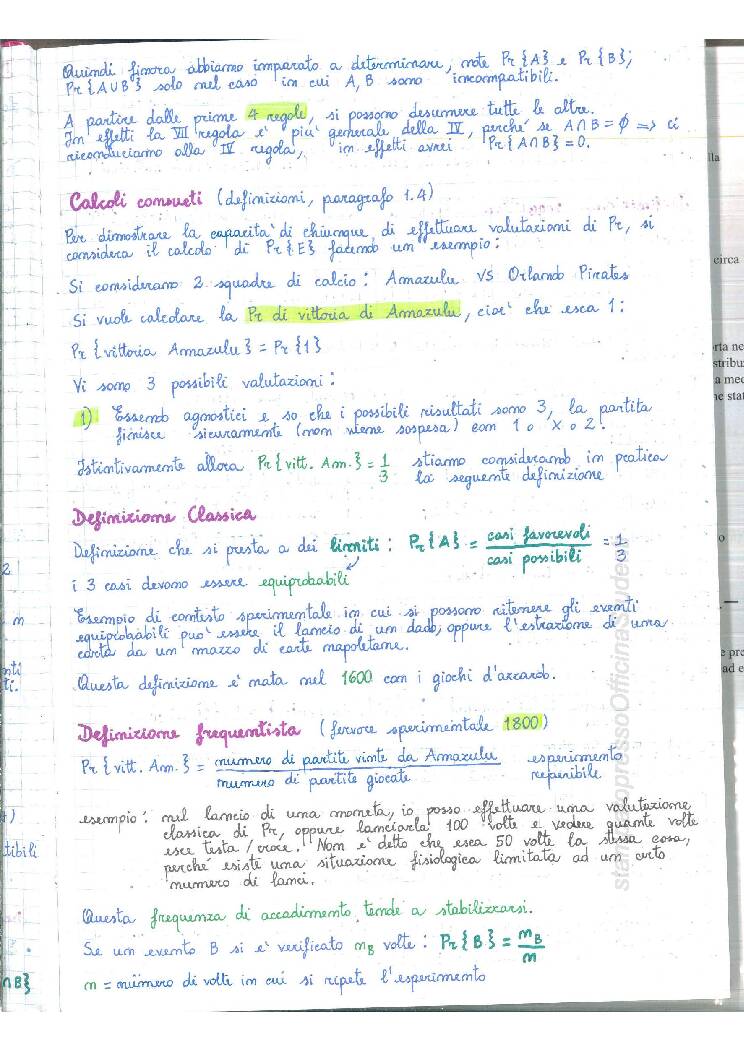 Quindi finora abbiamo imparato a determinare, note Pr{A} e Pr{B};
Pr{A∪B} solo nel caso in cui A, B sono incompatibili.
A partire dalle prime 4 regole, si possono desumere tutte le altre.
In effetti la VII regola e' piu' generale della IV, perché se A∩B = ∅ ⇒ ci
riconduciamo alla IV regola, im effetti avrei Pr{A∩B} = 0.
Calcoli consueti (definizioni, paragrafo 1.4)
Per dimostrare la capacita' di chiunque di effettuare valutazioni di Pr, si
considera il calcolo di Pr{E} facendo un esempio:
Si considerano 2 squadre di calcio: Amazulu VS Orlando Pirates
Si vuole calcolare la Pr di vittoria di Amazulu, cioe' che esca 1:
Pr{vittoria Amazulu} = Pr{1}
Vi sono 3 possibili valutazioni:
1) Essendo agnostici e so che i possibili risultati sono 3, la partita
finisce sicuramente (non viene sospesa) con 1 o X o 2.
Istintivamente allora Pr{vitt. Am.} = 1/3 stiamo considerando in pratica
la seguente definizione
Definizione Classica
Definizione che si presta a dei limiti: Pr{A} = casi favorevoli / casi possibili = 1/3
i 3 casi devono essere equiprobabili
Esempio di contesto sperimentale in cui si possono ritenere gli eventi
equiprobabili puo' essere il lancio di un dado, oppure l'estrazione di una
carta da un mazzo di carte napoletane.
Questa definizione e' nata nel 1600 con i giochi d'azzardo.
Definizione frequentista (fervore sperimentale 1800)
Pr{vitt. Am.} = numero di partite vinte da Amazulu / numero di partite giocate esperimento
ripetibile
esempio: nel lancio di una moneta, io posso effettuare una valutazione
classica di Pr, oppure lanciarla 100 volte e vedere quante volte
esce testa/croce. Non e' detto che esca 50 volte la stessa cosa,
perché esiste una situazione fisiologica limitata ad un certo
numero di lanci.
Questa frequenza di accadimento tende a stabilizzarsi.
Se un evento B si e' verificato nB volte: Pr{B} = nB/n
n = numero di volte in cui si ripete l'esperimento
lla
circa
rta ne
stribu
a med
ne stat
o
e pre
ad e
2
n
nti
ti.
tibili
∩B}